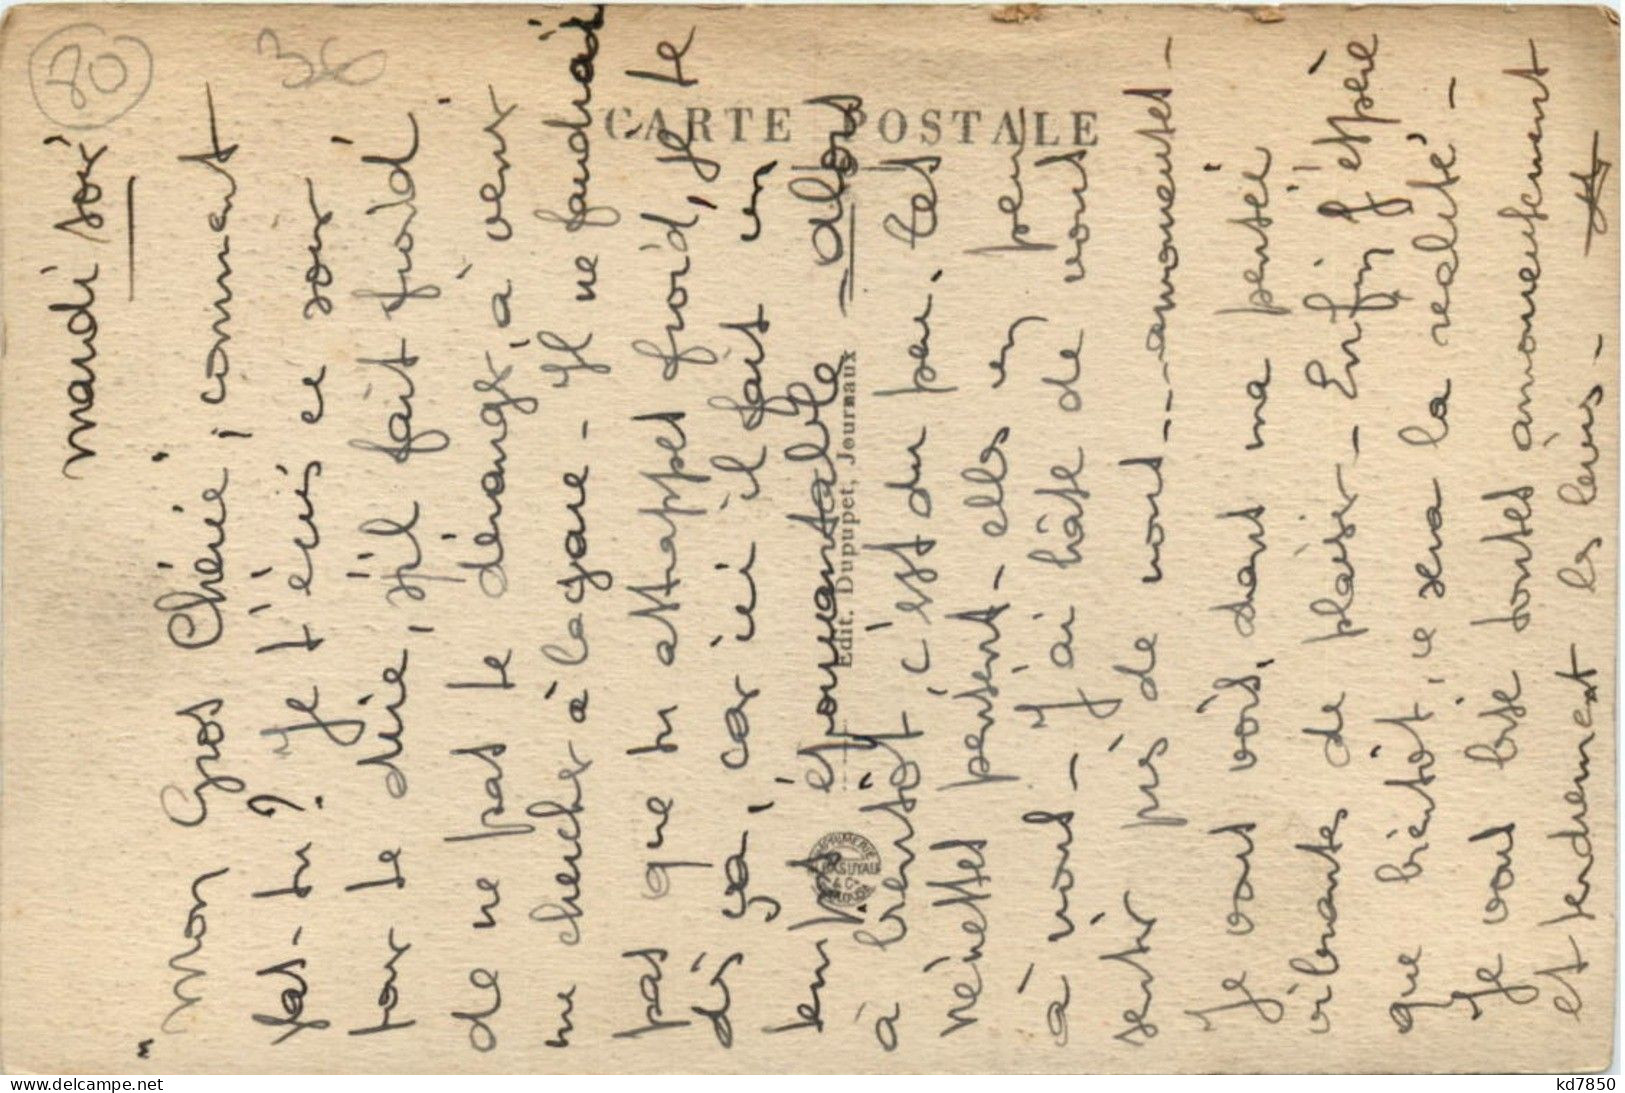 mardi soir
80
38
" Mon Gros Chérie, comment
vas-tu? Je t'écris ce soir
pour te dire, s'il fait froid
de ne pas te déranger, à venir
me chercher à la gare - Il ne faudrait
pas que tu attrappes froid, je te
dis ça, car ici il fait un
temps épouvantable - alors
à bientôt, c'est du peu. Les
Nénettes pensent-elles un peu
à vous - J'ai hâte de vous
sentir près de vous -- amoureuses -
Je vous vois, dans ma pensée
vibrantes de plaisir - Enfin j'espère
que bientôt, ce sera la réalité -
Je vous bise toutes amoureusement
et tendrement les lèvres -
CARTE POSTALE
Edit. Dupupet, Journaux
IMPRIMERIE
www.delcampe.net
kd7850